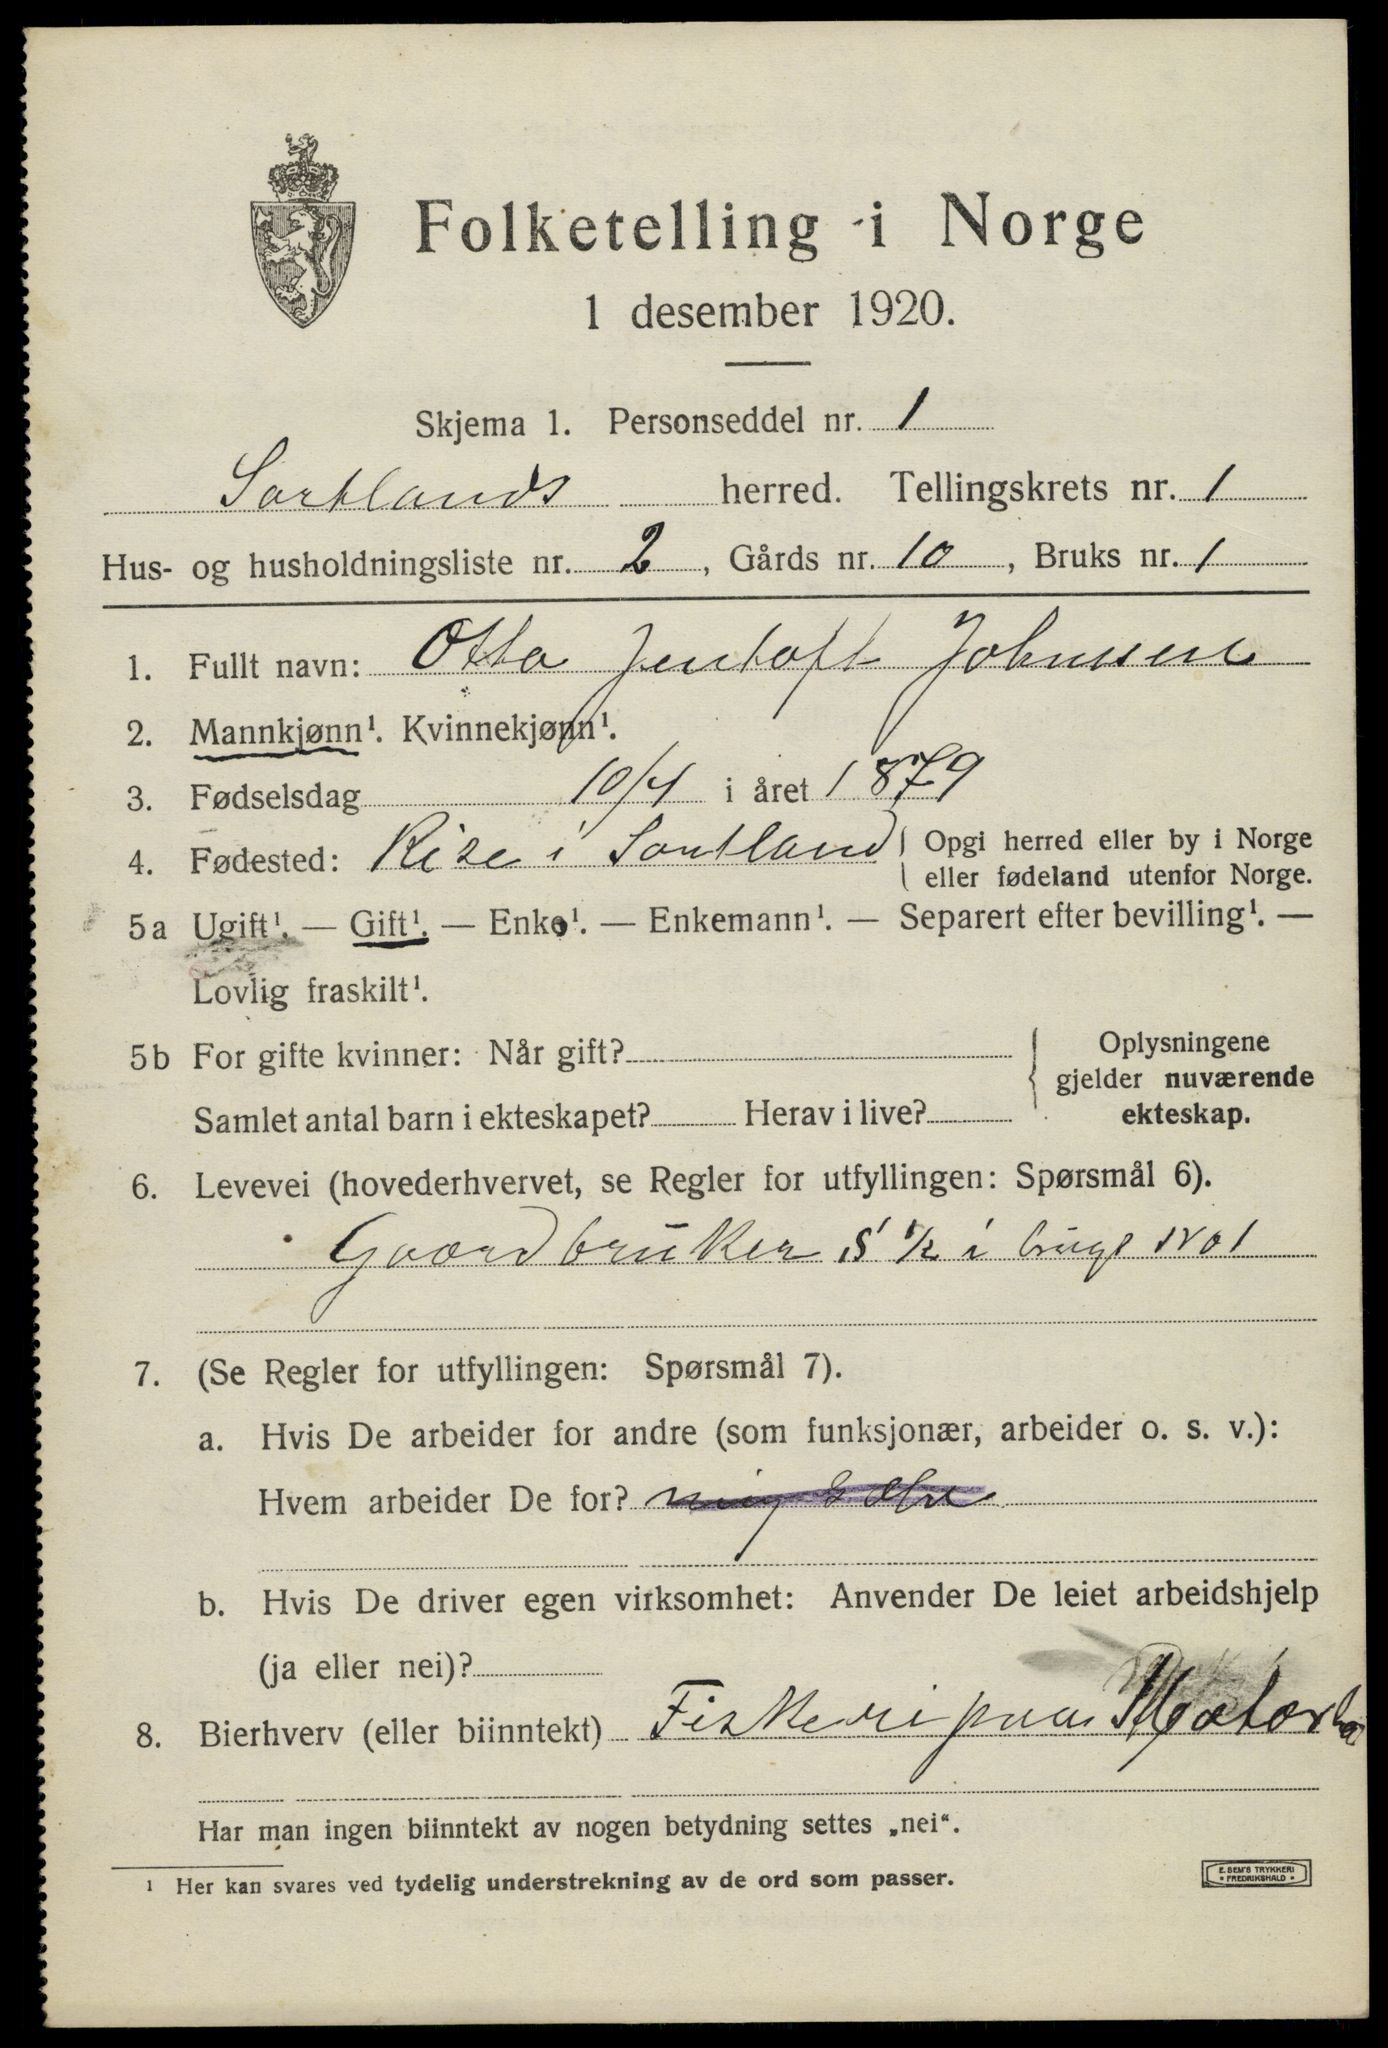 Folketelling i Norge
1 desember 1920.
Skjema 1. Personseddel nr. 1
Sortlands herred. Tellingskrets nr. 1
Hus- og husholdningsliste nr. 2, Gårds nr. 10, Bruks nr. 1
1. Fullt navn: Otto Jentoft Johnsen
2. Mannkjønn¹. Kvinnekjønn¹.
3. Fødselsdag 10/4 i året 1879
4. Fødested: Rise i Sortland { Opgi herred eller by i Norge
eller fødeland utenfor Norge.
5a Ugift¹. — Gift¹. — Enke¹. — Enkemann¹. — Separert efter bevilling¹. —
Lovlig fraskilt¹.
5b For gifte kvinner: Når gift?
Samlet antal barn i ekteskapet? Herav i live?
Oplysningene
gjelder nuværende
ekteskap.
6. Levevei (hovederhvervet, se Regler for utfyllingen: Spørsmål 6).
Gaardbruker S ½ i
7. (Se Regler for utfyllingen: Spørsmål 7).
a. Hvis De arbeider for andre (som funksjonær, arbeider o. s. v.):
Hvem arbeider De for?
b. Hvis De driver egen virksomhet: Anvender De leiet arbeidshjelp
(ja eller nei)?
8. Bierhverv (eller biinntekt) Fiskeri paa
Har man ingen biinntekt av nogen betydning settes „nei“.
¹ Her kan svares ved tydelig understrekning av de ord som passer.
E. SEM'S TRYKKERI
• FREDRIKSHALD •